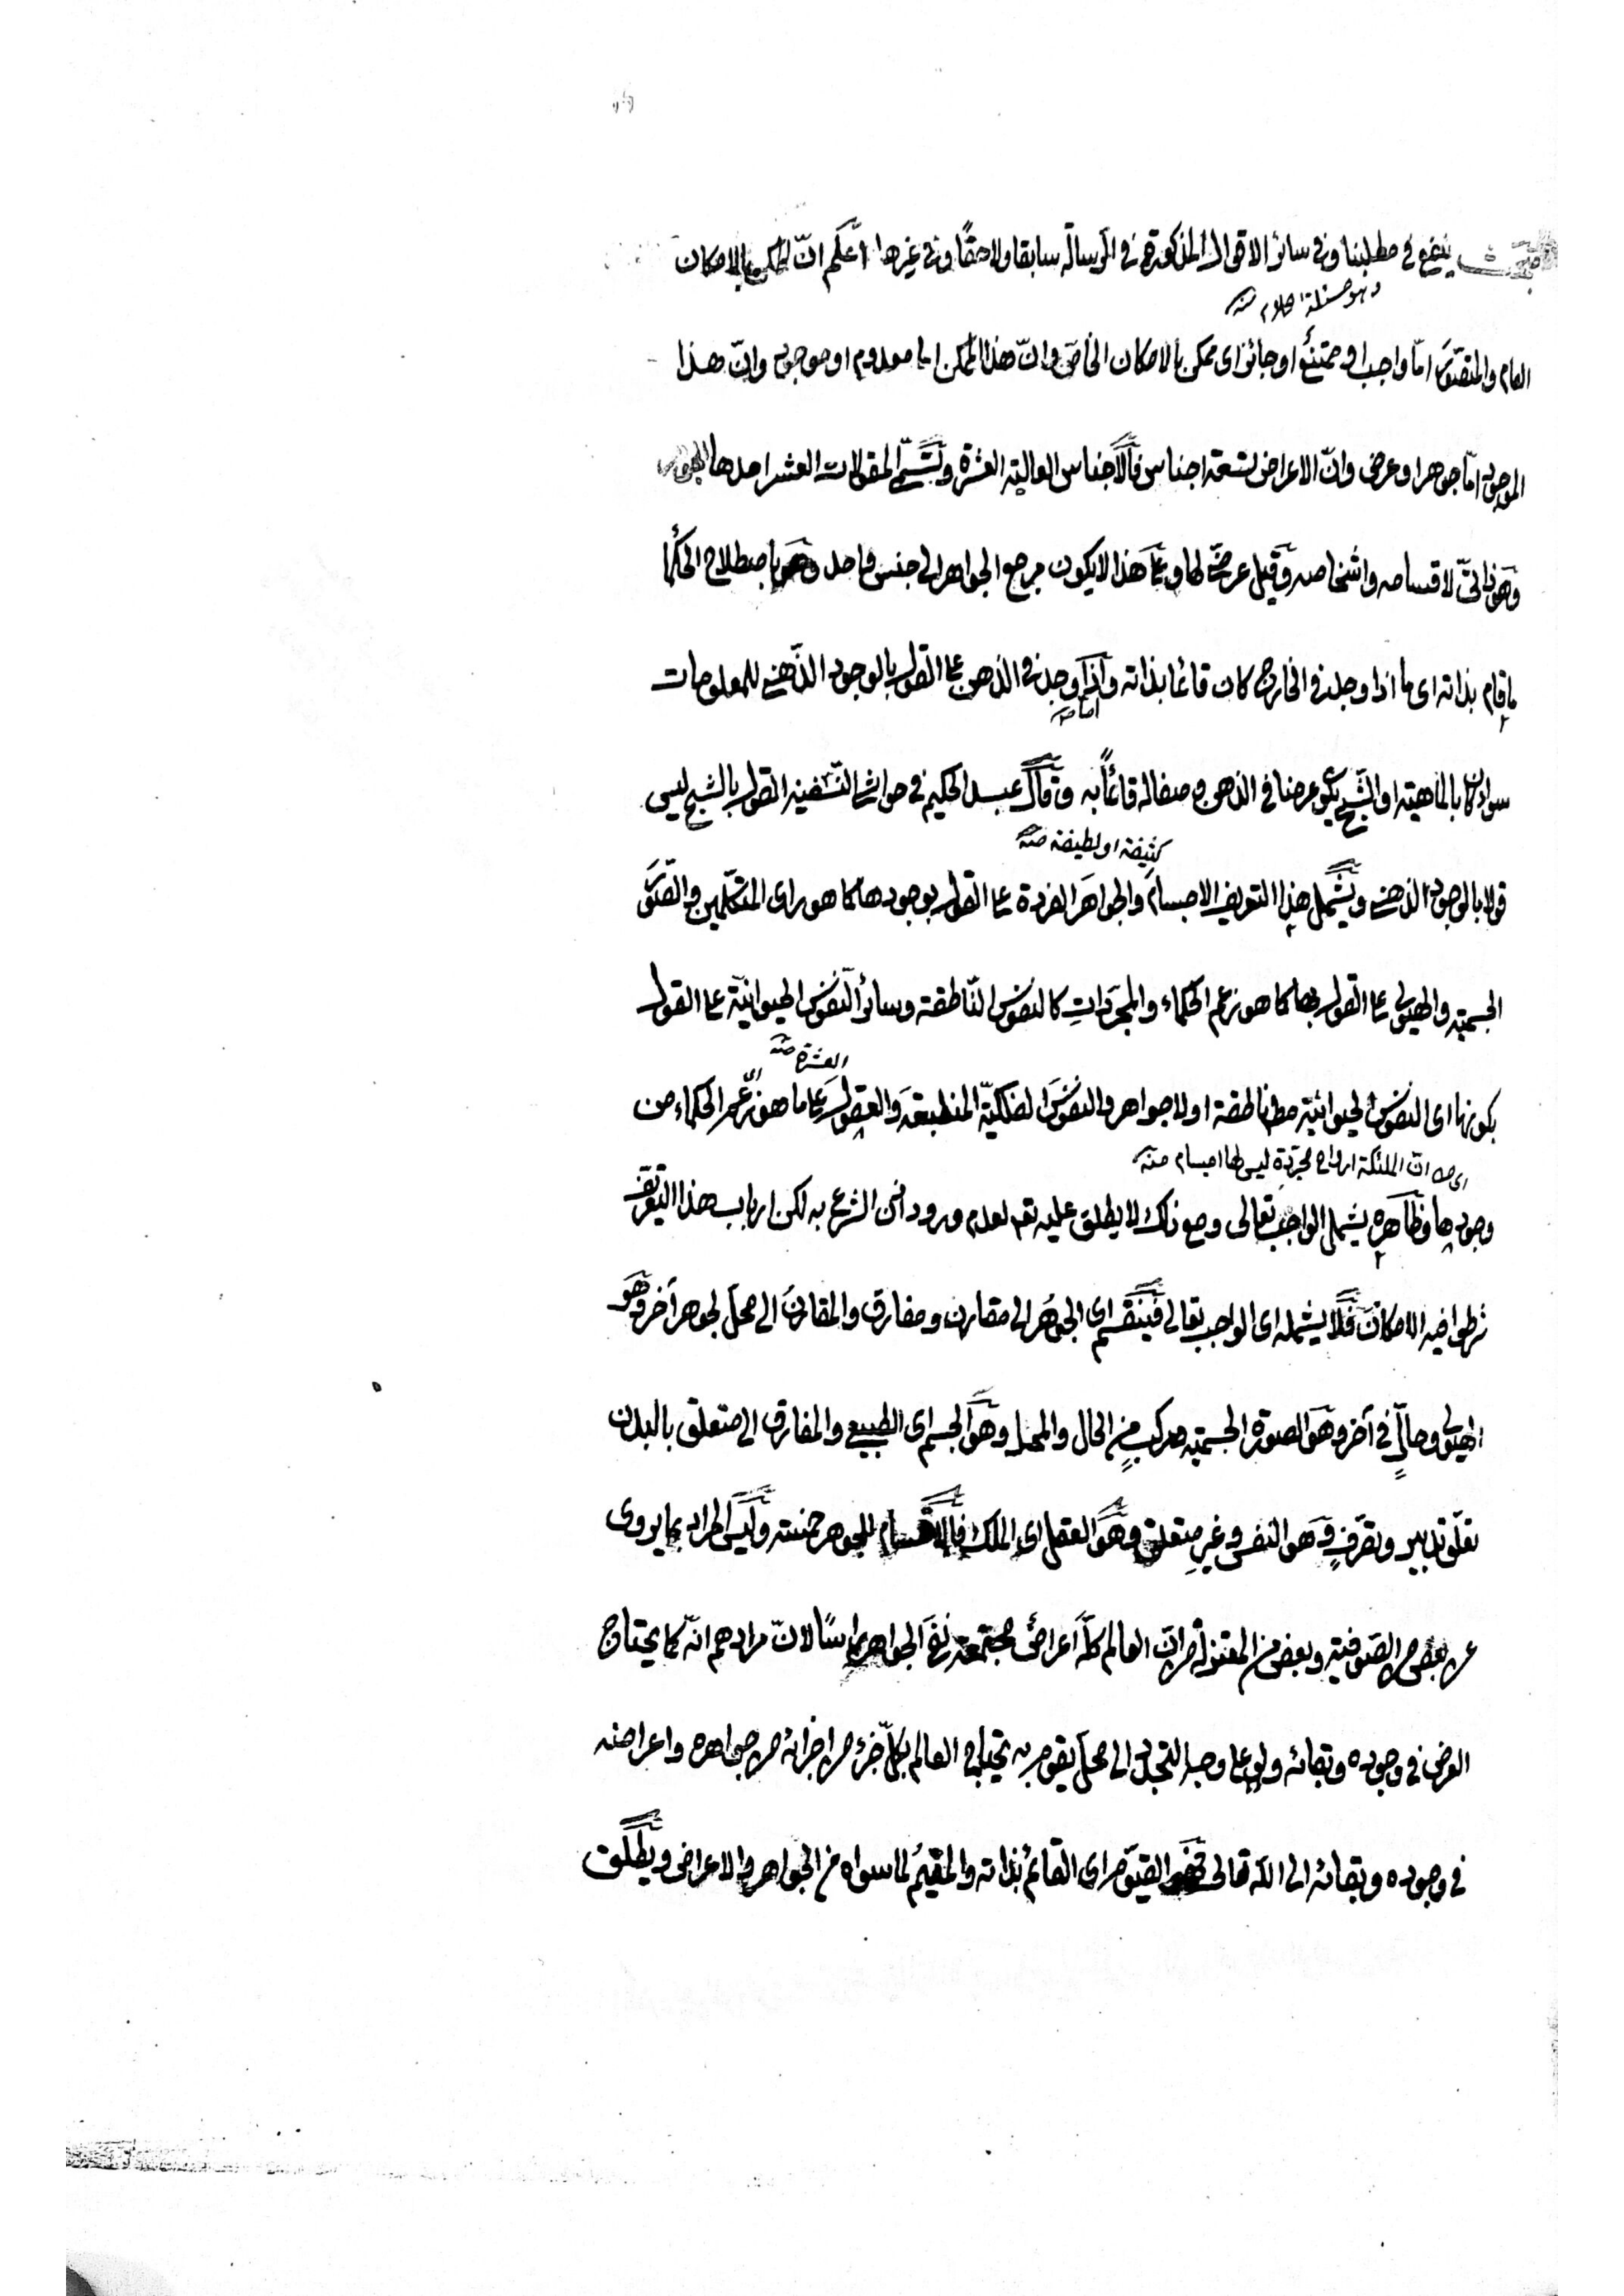 مبحث ينفع في مطلبنا وفي سائر الاقوال المذكورة في الرسالة سابقا ولاحقًا وفي غيرها اعلم انّ الممكن بالامكان
العام والمتصوّر امّا واجب او ممتنع او جائز اى ممكن بالامكان الخاص وانّ هذا الممكن اما معدوم او موجود وانّ هذا
الموجود امّا جوهر او عرض وانّ الاعراض تسعة اجناس فالاجناس العالية العشرة وتسمّى المقولات العشر احدها الجوهر
وهو ذاتىّ لاقسامه واشخاصه وقيل عرضىّ لها وعلى هذا لا يكون مرجع الجواهر الى جنس واحد وهو باصطلاح الحكما
ما قام بذاته اى ما اذا وجد في الخارج كان قائما بذاته واذا وجد في الذهن على القول بالوجود الذّهنى للمعلومات
اما
سواء كان بالماهية او الشبح يكون عرضا في الذهن وصفا له قائمًا به وقال عبد الحكيم في حواشى القول بالشبح ليس
كثيفة او لطيفة منه
قولا بالوجود الذهنى ويشمل هذا التعريف الاجسام والجواهر الفردة على القول بوجودها كما هو راى المتكلّمين والصّورَ
الجسمية والهيولى على القول بها كما هو زعم الحكماء والمجرّداتِ كالنفوس النّاطقة وسائر النّفوس الحيوانيّة على القول
العشرة منه
بكونها اى النفوس الحيوانية ناطقة اولا جواهر والنفوسَ الفلكيّة المنطبعة والعقول على ما هو زعم الحكماء من
اى من انّ الملئكة ارواح مجرّدة ليس لها اجسام منه
وجودها وظاهره يشمل الواجب تعالى ومع ذلك لا يطلق عليه تعم لعدم ورود اذن الشرع به لكن ارباب هذا التعريف
شرطوا فيه الامكان فلا يشمله اى الواجب تعالى فينقسم اى الجوهر الى مقارن ومفارق والمقارن الى محلّ لجوهر آخر وهو
الهيولى وحالٍّ في آخر وهو الصورة الجسمية ومركبٍ من الحال والمحل وهو الجسم اى الطبيعى والمفارق الى متعلق بالبدن
تعلّق تدبير وتصرّفٍ وهو النفس وغيرِ متعلق وهو العقل اى الملك فالاقسام للجوهر خمسة وليس المراد بما يروى
عن بعض من الصّوفية وبعض من المعتزلة من انّ العالم كلّه اعراض مجتمعة نفى الجواهر راسًا لانّ مرادهم انّه كما يحتاج
العرض في وجوده وبقائه ولو على وجه التجدّد الى محلّ يقوم به يحتاج العالم بكلّ جزء من اجزائه من جواهره واعراضه
في وجوده وبقائه الى الله تعالى فهو القيّوم اى القائم بذاته والمقيم لما سواه من الجواهر والاعراض ويطلق